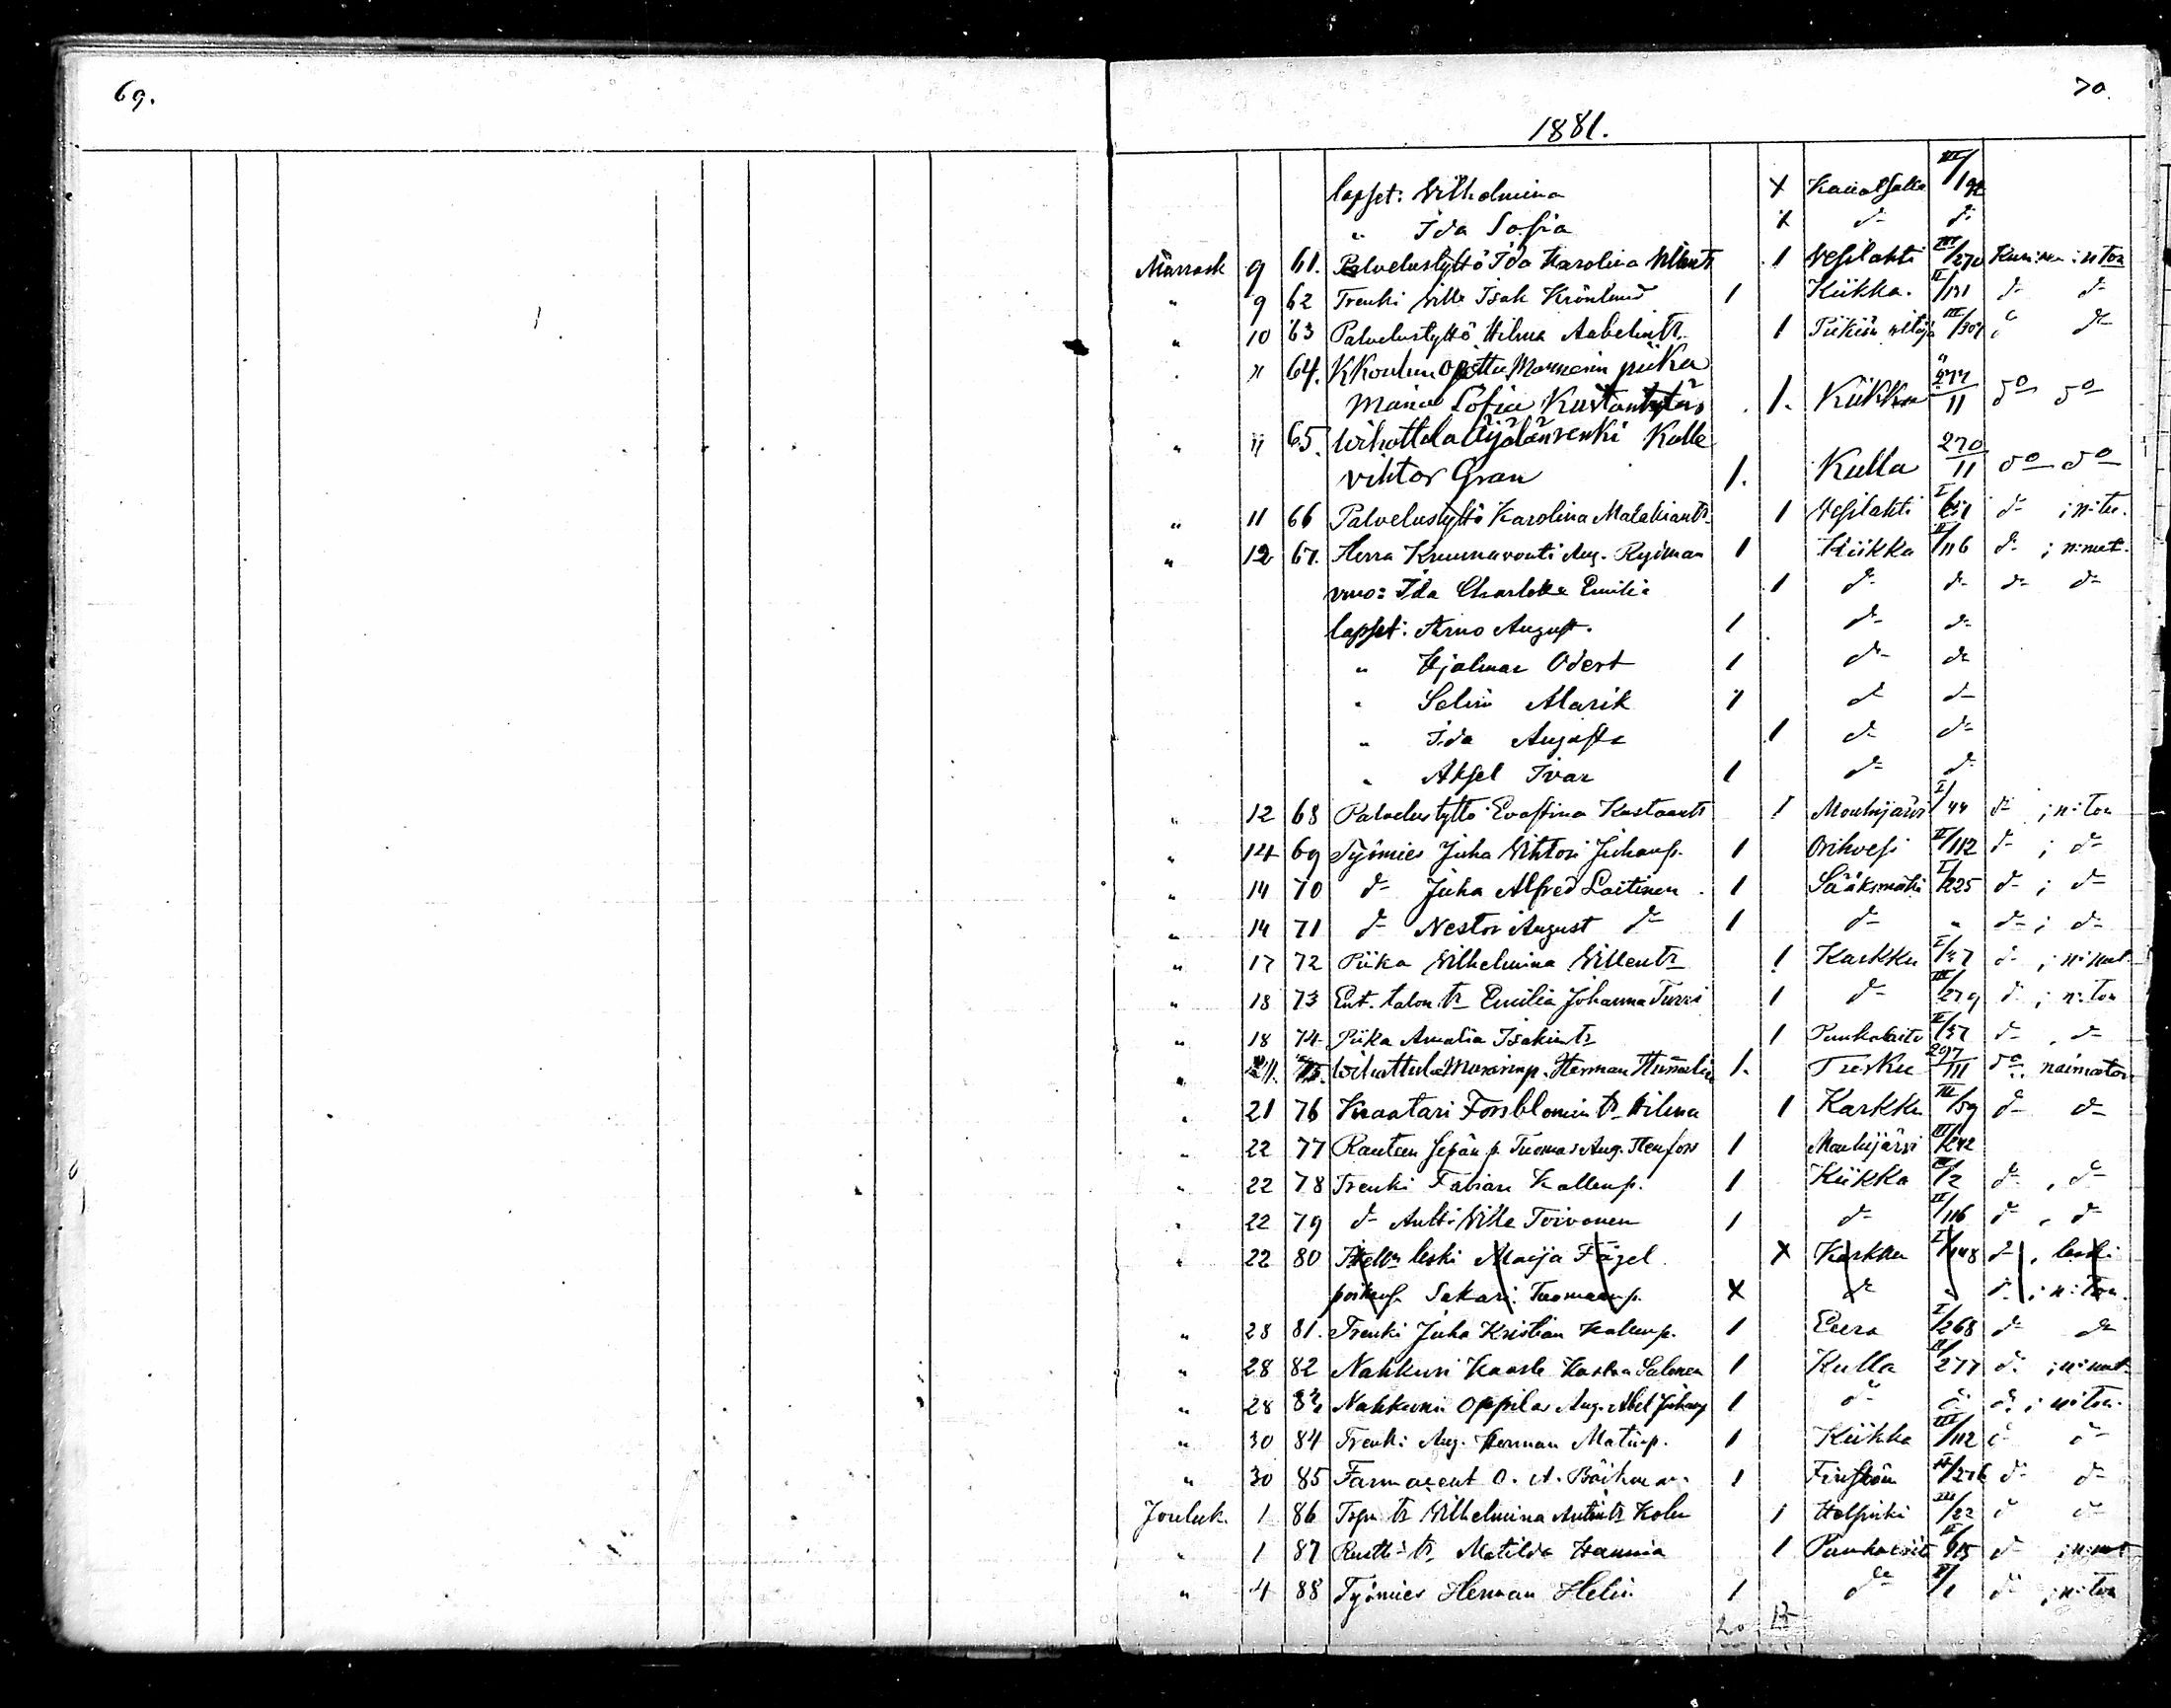 69.
70.
1881.
lapset: Wilhelmina X Kauvatsa III/192
" Ida Sofia X d- d-
Marrask. 9 61. Palvelustyttö Ida Karolina 1 Vesilahti III/270 n:ton
" 9 62 Trenki Ville Isak Krönlund 1 Kiikka II/131 d- d-
" 10 63 Palvelustyttö Hilma Aabelintr. 1 III/309 d-
" 11 64. K Koulun opettaj Mannerin piika
Maria Sofia Kustantytär 1. Kiikka 277/II do do
" 11 65. Wihattula Äijälän renki Kalle
Viktor Gran 1. Kulla 270/II do do
" 11 66 Palvelustyttö Karolina Malakiantr 1 Vesilahti I/ d- ; n:ton
" 12 67. Herra Kruununvouti Aug. Ryöman 1 Kiikka II/116 d- ; n:mut.
vmo: Ida Charlotta Emilia 1 d- d- d- d-
lapset: Arno August. 1 d- d-
" Hjalmar Odert 1 d- d-
" Selim Alarik 1 d- d-
" Ida Augusta 1 d- d-
" Aksel Ivar 1 d- d-
" 12 68 Palvelustyttö Evastina Kustaantr 1 Mouhijärvi I/44 d- ; n:ton
" 14 69 Työmies Juha Vihtori Juhanp. 1 Orihvesi II/112 d- ; d-
" 14 70 d- Juha Alfred Laitinen 1 Sääksmäki I/225 d- ; d-
" 14 71 d- Nestor August d- 1 d- " d- ; d-
" 17 72 Piika Wilhelmina Willentr 1 Karkku I/37 d- ; n:mut
" 18 73 Ent. talon tr Emilia Johanna Turri 1 d- III/279 d- ; n:ton
" 18 74 Piika Amalia Isakintr 1 Punkalaitu II/57 d- , d-
" 21. 75. Wihattula Murarinp. Herman Hemelin 1. Turku 297/III do naimaton
" 21 76 Kraatari Forsblomin tr Hilma 1 Karkku III/59 d- d-
" 22 77 Rautasepän p. Tuomas Aug. Stenfors 1 Mouhijärvi III/242
" 22 78 Trenki Fabian Kallenp. 1 Kiikka III/2 d- , d-
" 22 79 d- Antti Ville Toivonen 1 d- II/116 d- , d-
" 22 80 Itsell:n leski Maija Fågel X Karkku I/148 d- , leski
poikans. Sakari Tuomaanp. X d- " d- ; n:ton
" 28 81. Trenki Juha Kristian Kallenp. 1 Eura I/268 d- d-
" 28 82 Nahkuri Kaarle Kustaa Salonen 1 Kulla II/277 d- ; n:mut
" 28 83 Nahkurin oppilas Aug. Abel Juhanp 1 d- d- d- ; n:ton
" 30 84 Trenki Aug. Herman Matinp. 1 Kiikka III/112 d- d-
" 30 85 Farmaceut O. A. Böihman 1 II/276 d- d-
Jouluk. 1 86 Torp. tr Wilhelmina Antintr Kolu 1 Halsinki III/22 d- d-
" 1 87 Rustt: tr Matilda Hannia 1 Punkalait II/ d- ; n:mut
" 4 88 Työmies Herman Helin 1 do II/1 d- ; n:ton
20 15